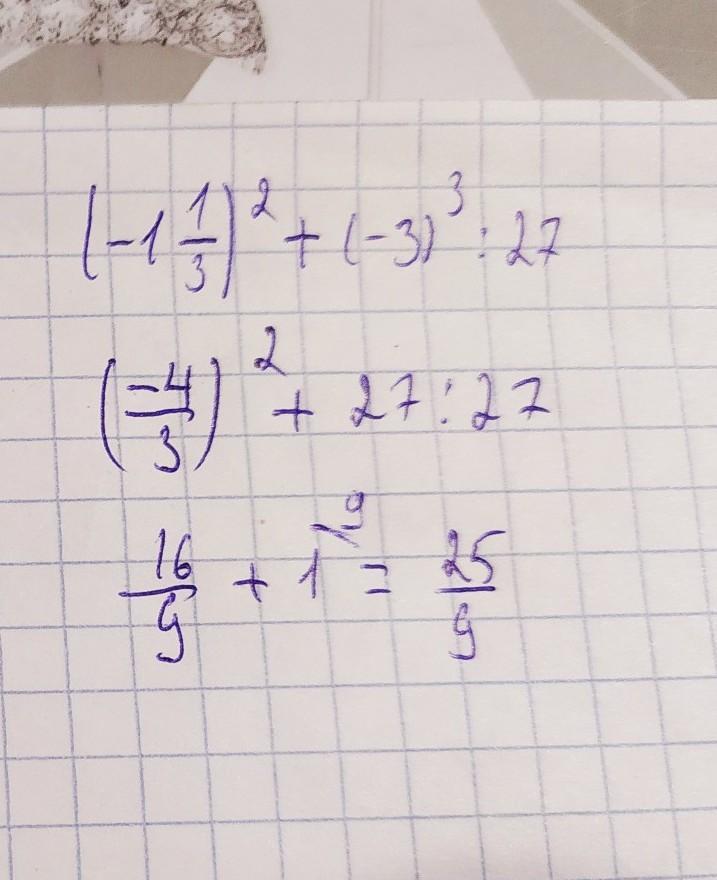 (-1 1/3)² + (-3)³ : 27
(-4/3)² + 27 : 27
16/9 + 1\9 = 25/9